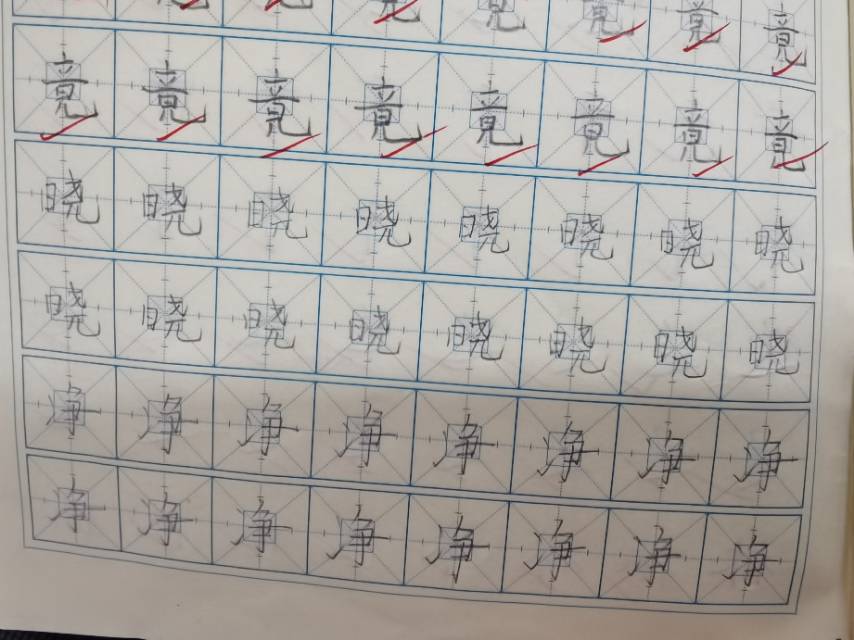 竟 竟 竟 竟
竟 竟 竟 竟 竟 竟 竟 竟
晓 晓 晓 晓 晓 晓 晓 晓
晓 晓 晓 晓 晓 晓 晓 晓
净 净 净 净 净 净 净 净
净 净 净 净 净 净 净 净